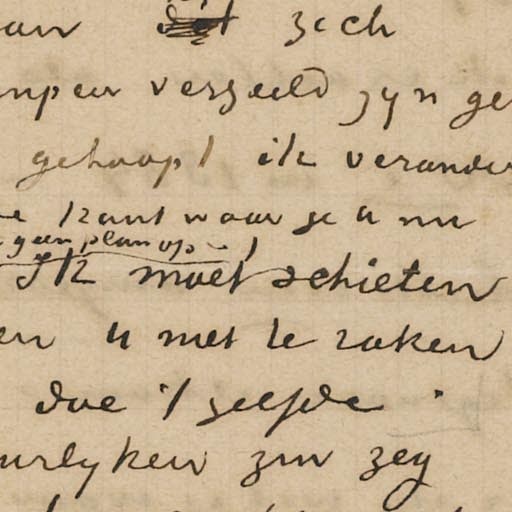 dat zich
verzeild zyn ge
gehoopt ik verander
kant waar je U nu
geen plan op
Ik moet schieten
en U met te raken
doe 't zelfde.
urlyken zin zeg